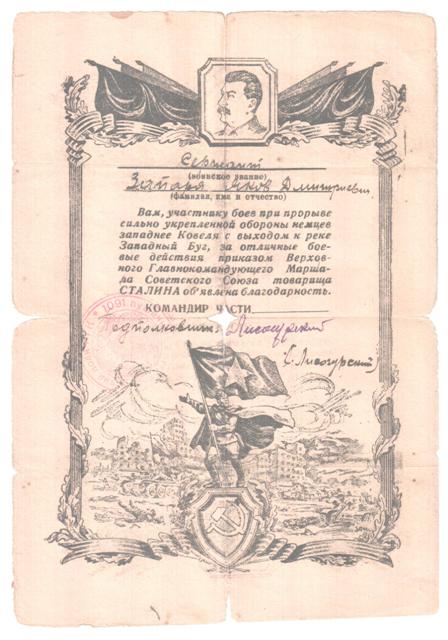 (воинское звание)
Яков Дмитриевич
(фамилия, имя и отчество)
Вам, участнику боев при прорыве
сильно укрепленной обороны немцев
западнее Ковеля с выходом к реке
Западный Буг, за отличные бое-
вые действия приказом Верхов-
ного Главнокомандующего Марша-
ла Советского Союза товарища
СТАЛИНА об'явлена благодарность.
КОМАНДИР ЧАСТИ
Подполковник Лисогурский
(Лисогурский)